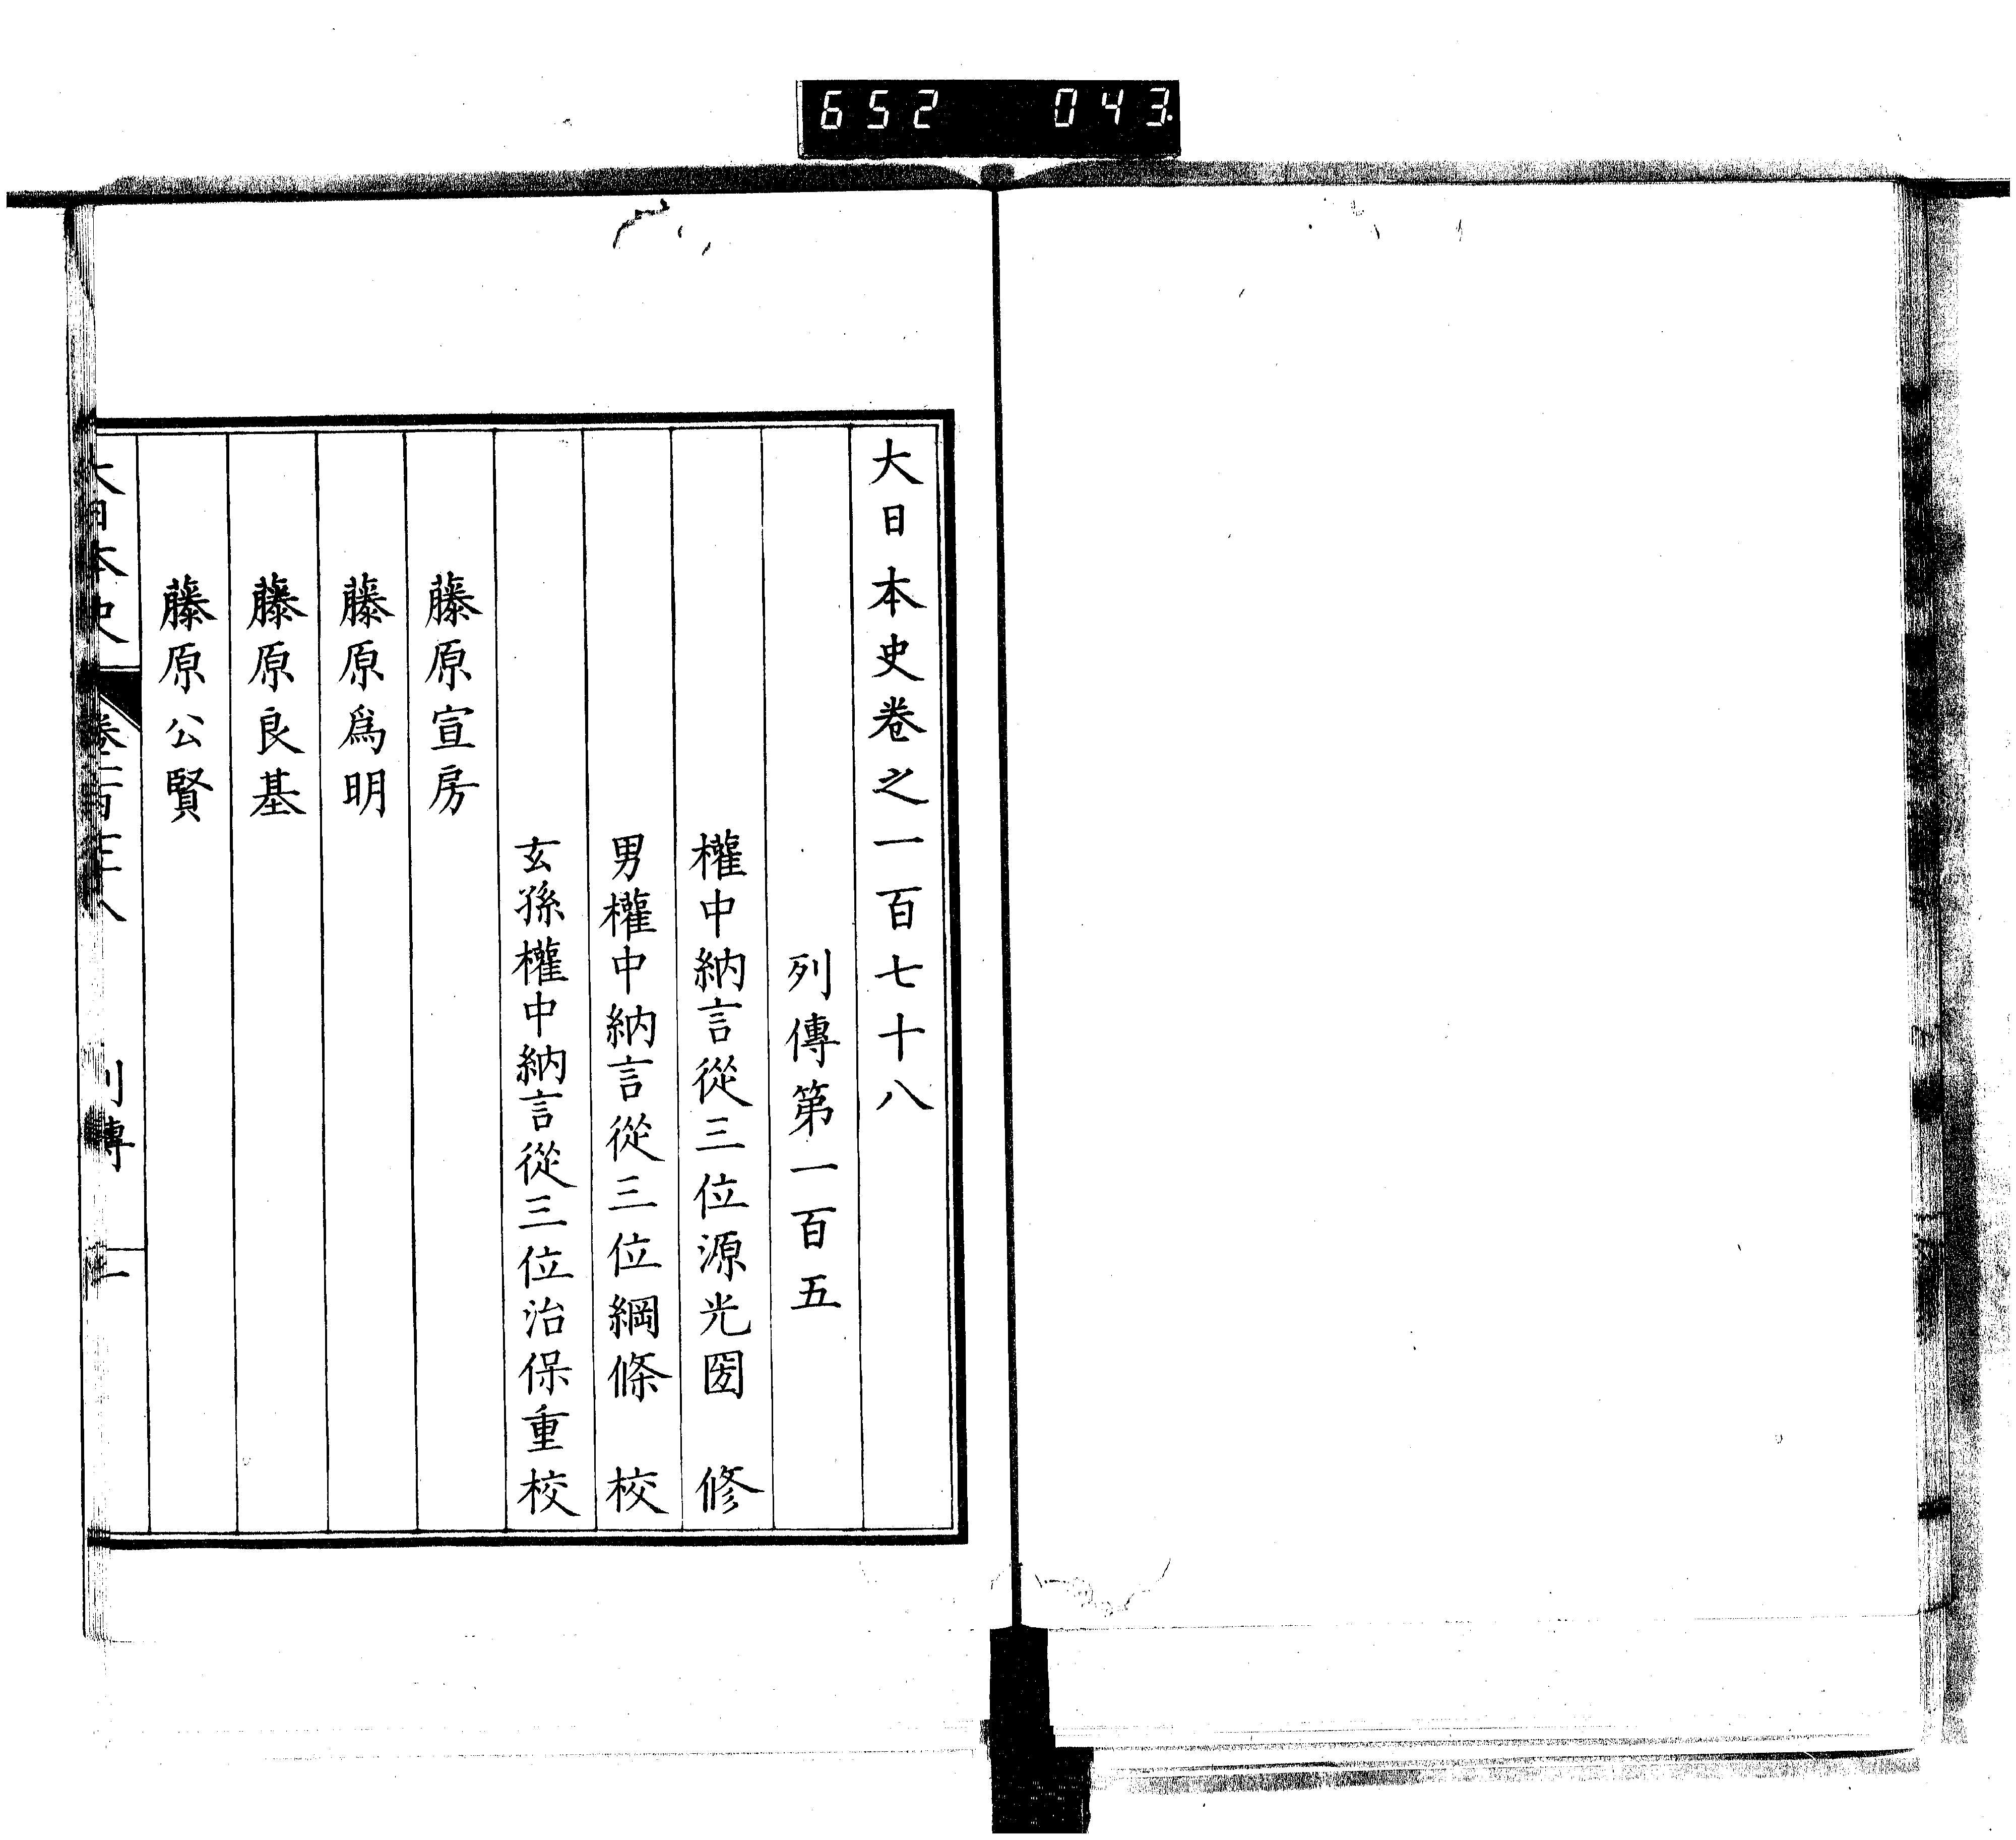 652 043
大日本史卷之一百七十八
列傳第一百五
權中納言從三位源光圀 修
男權中納言從三位綱條 校
玄孫權中納言從三位治保重校
藤原宣房
藤原爲明
藤原良基
藤原公賢
大日本史
列傳